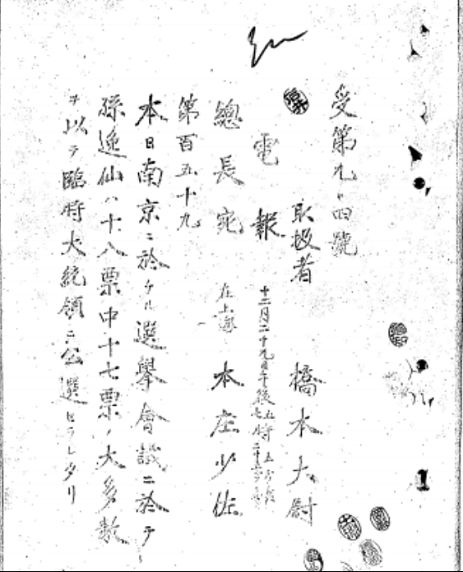 受第九、四號
取扱者 橋本大尉
電報
總長宛 在上海 本庄少佐
第百五十九
本日南京ニ於ケル選擧會議ニ於テ
孫逸仙ハ十八票中十七票ノ大多數
ヲ以テ臨時大統領ニ公選セラレタリ
1